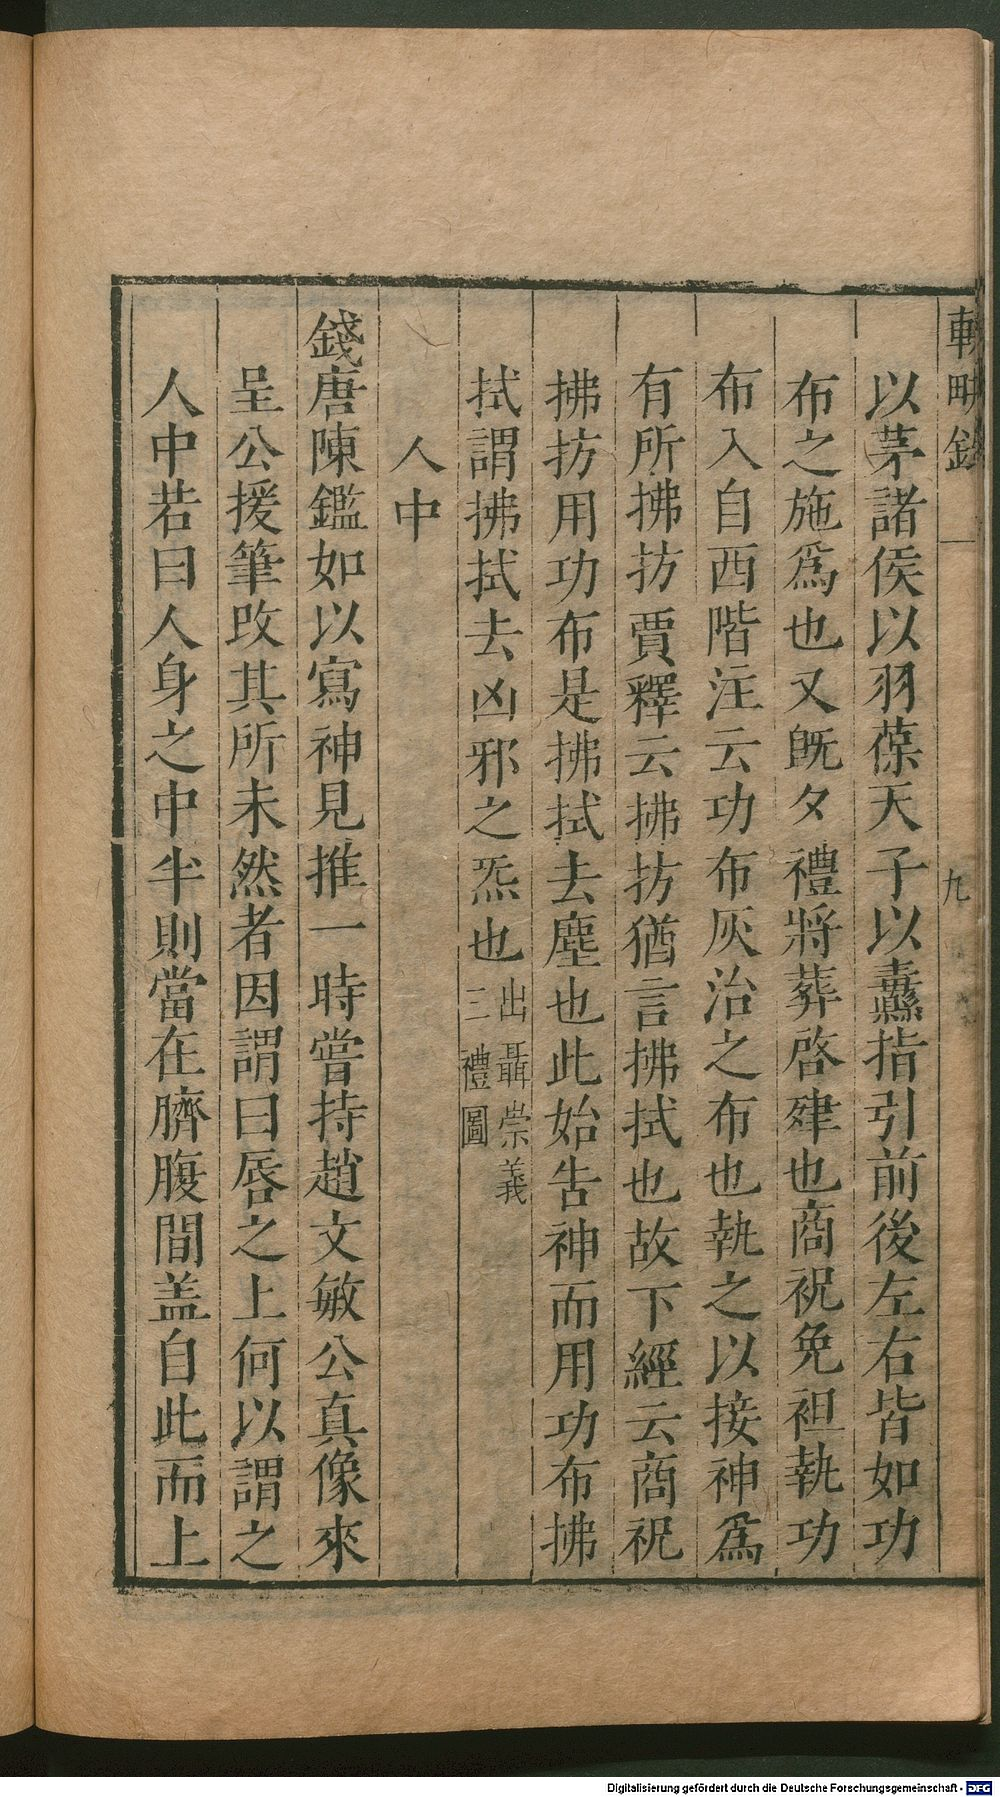 輟畊錄 九
以茅諸侯以羽葆天子以纛指引前後左右皆如功
布之施爲也又旣夕禮將葬啓肂也商祝免袒執功
布入自西階注云功布灰治之布也執之以接神爲
有所拂㧍賈釋云拂㧍猶言拂拭也故下經云商祝
拂㧍用功布是拂拭去塵也此始告神而用功布拂
拭謂拂拭去凶邪之炁也出聶崇義
三禮圖
人中
錢唐陳鑑如以寫神見推一時嘗持趙文敏公真像來
呈公援筆改其所未然者因謂曰唇之上何以謂之
人中若曰人身之中半則當在臍腹間盖自此而上
Digitalisierung gefördert durch die Deutsche Forschungsgemeinschaft - DFG